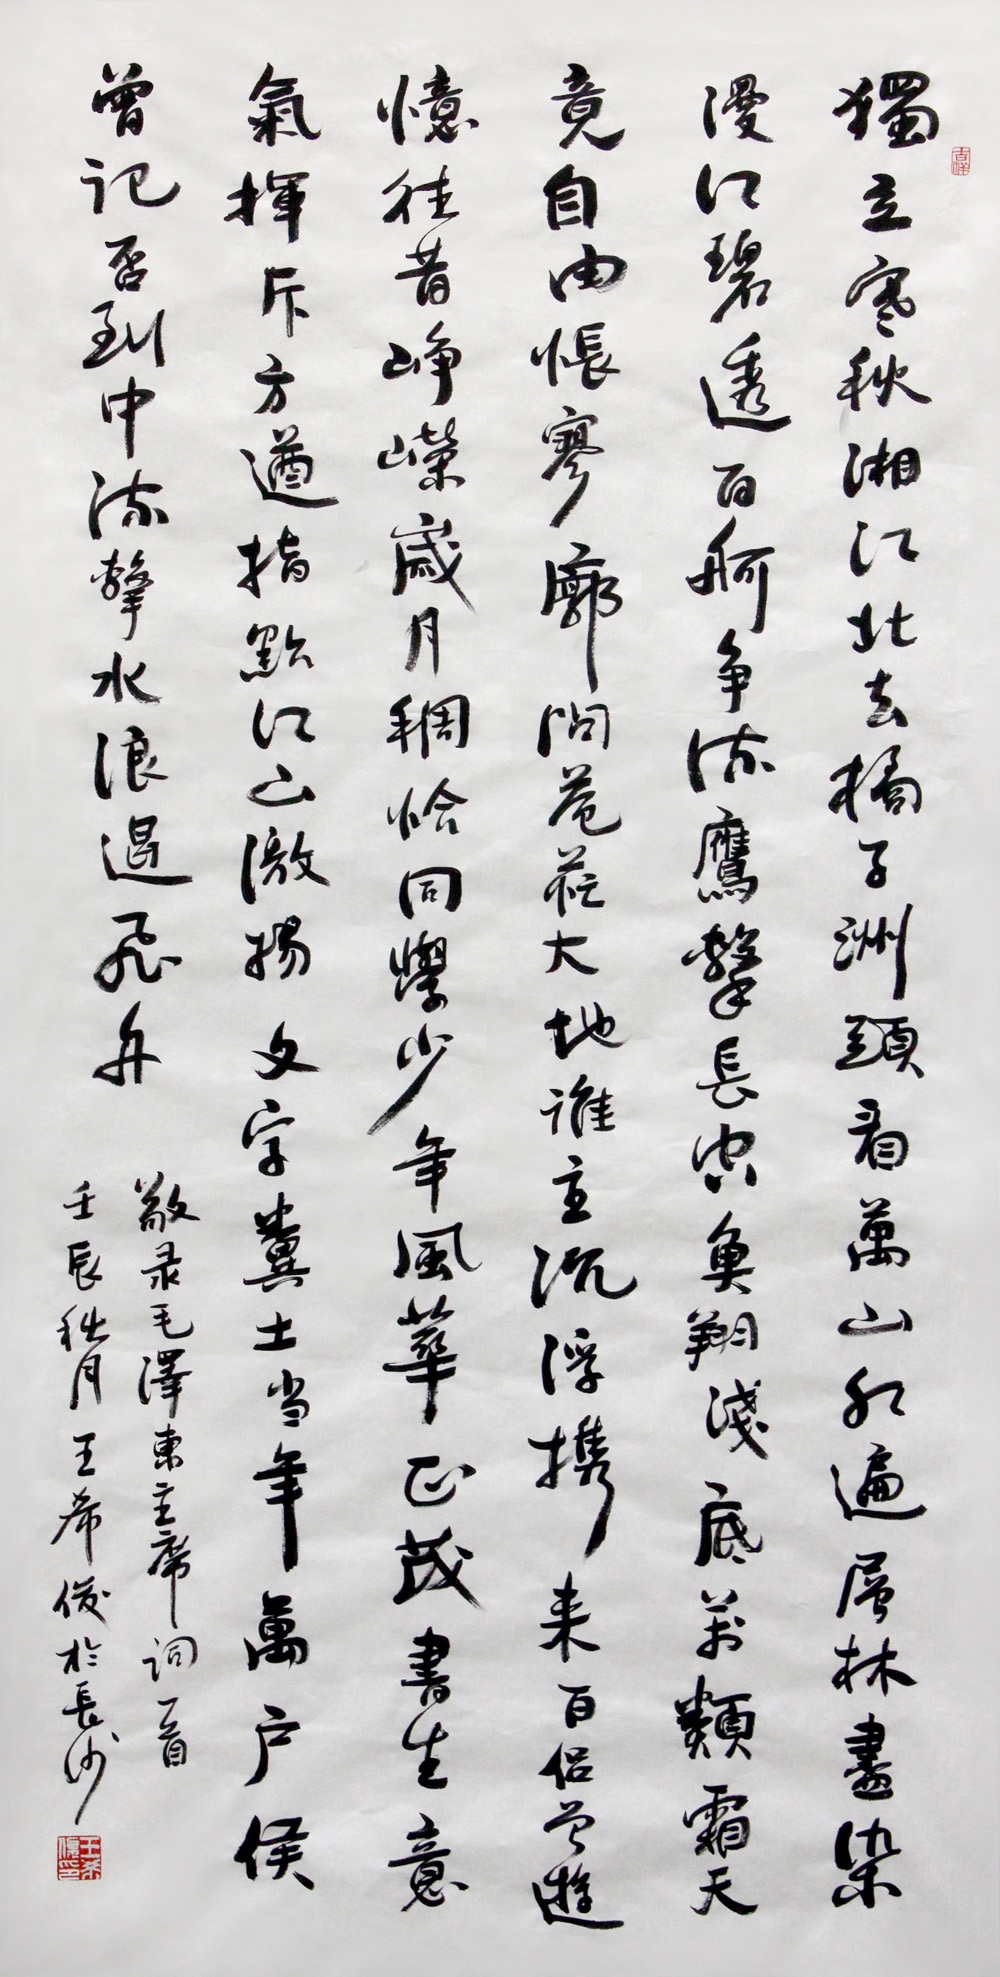 吉祥
獨立寒秋湘江北去橘子洲頭看萬山紅遍層林盡染
漫江碧透百舸争流鷹擊長空魚翔淺底萬類霜天
竟自由悵寥廓問蒼茫大地谁主沉浮携来百侣曾遊
憶往昔崢嶸歲月稠恰同學少年風華正茂書生意
氣揮斥方遒指點江山激揚文字糞土当年萬户侯
曾记否到中流擊水浪遏飛舟
敬录毛澤東主席词一首
壬辰秋月王希俊於長沙
王希俊印